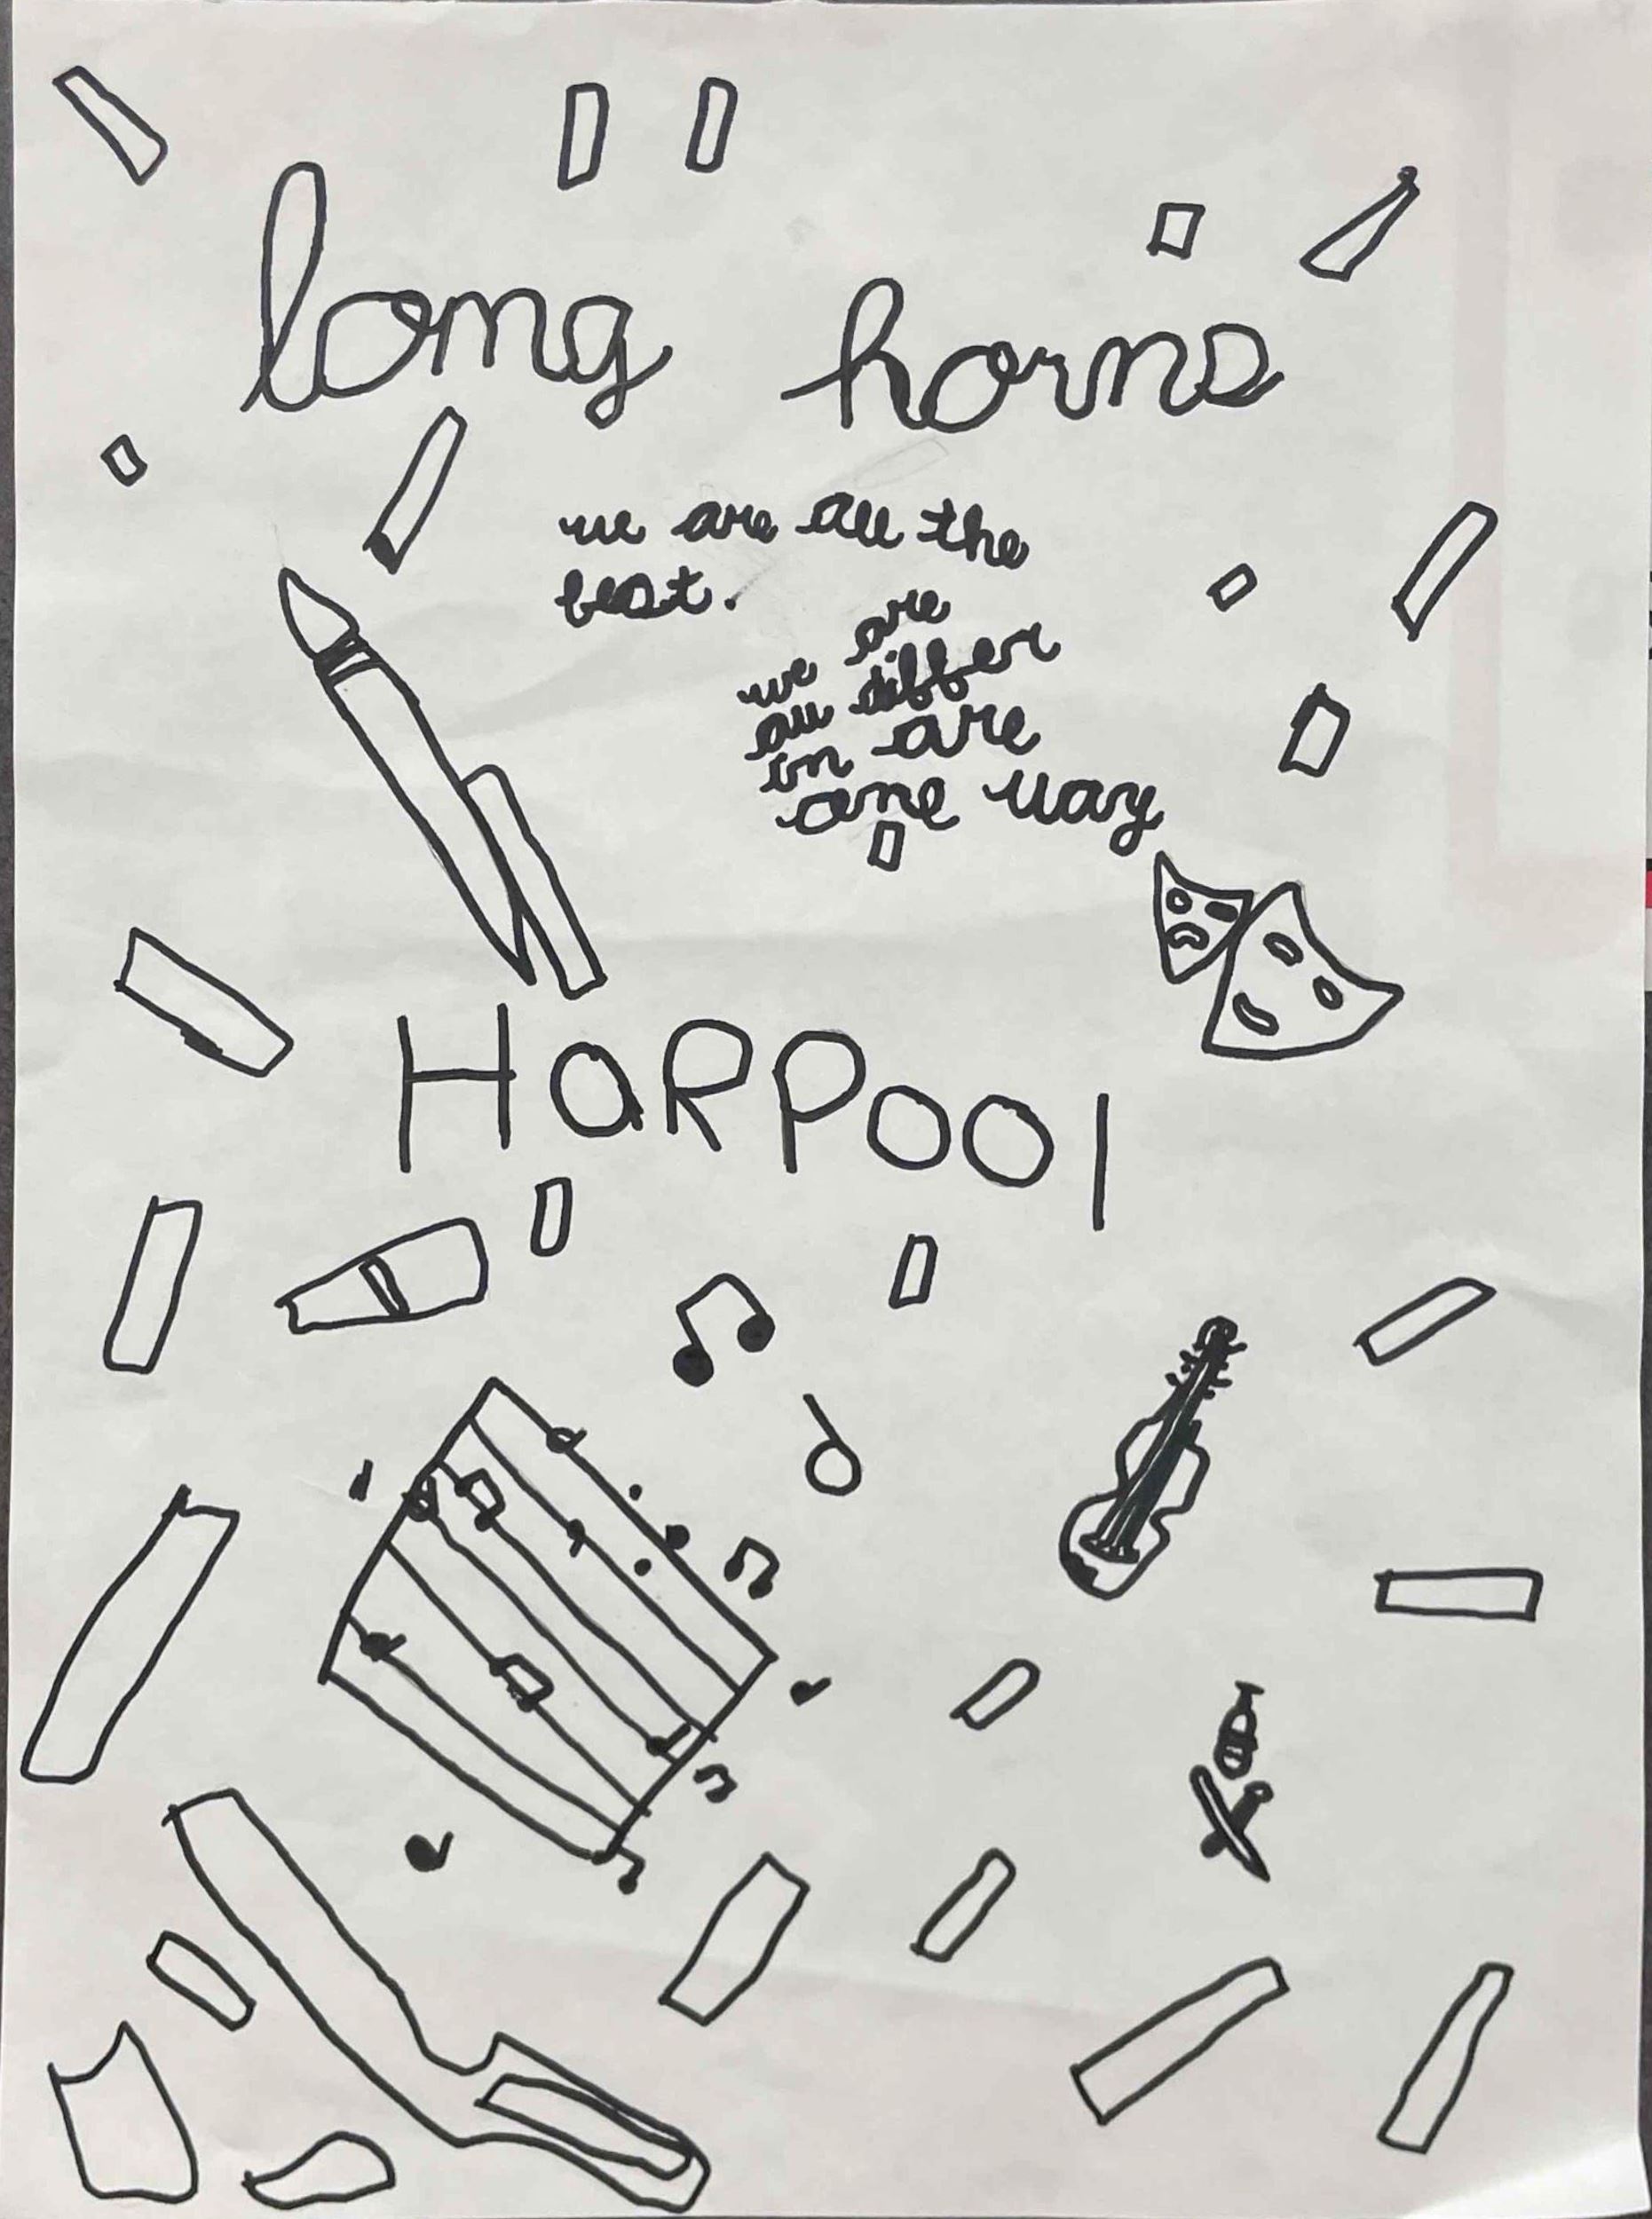 long horns
we are all the
best.
we are
all differ
in are
one way
HaRPOOl